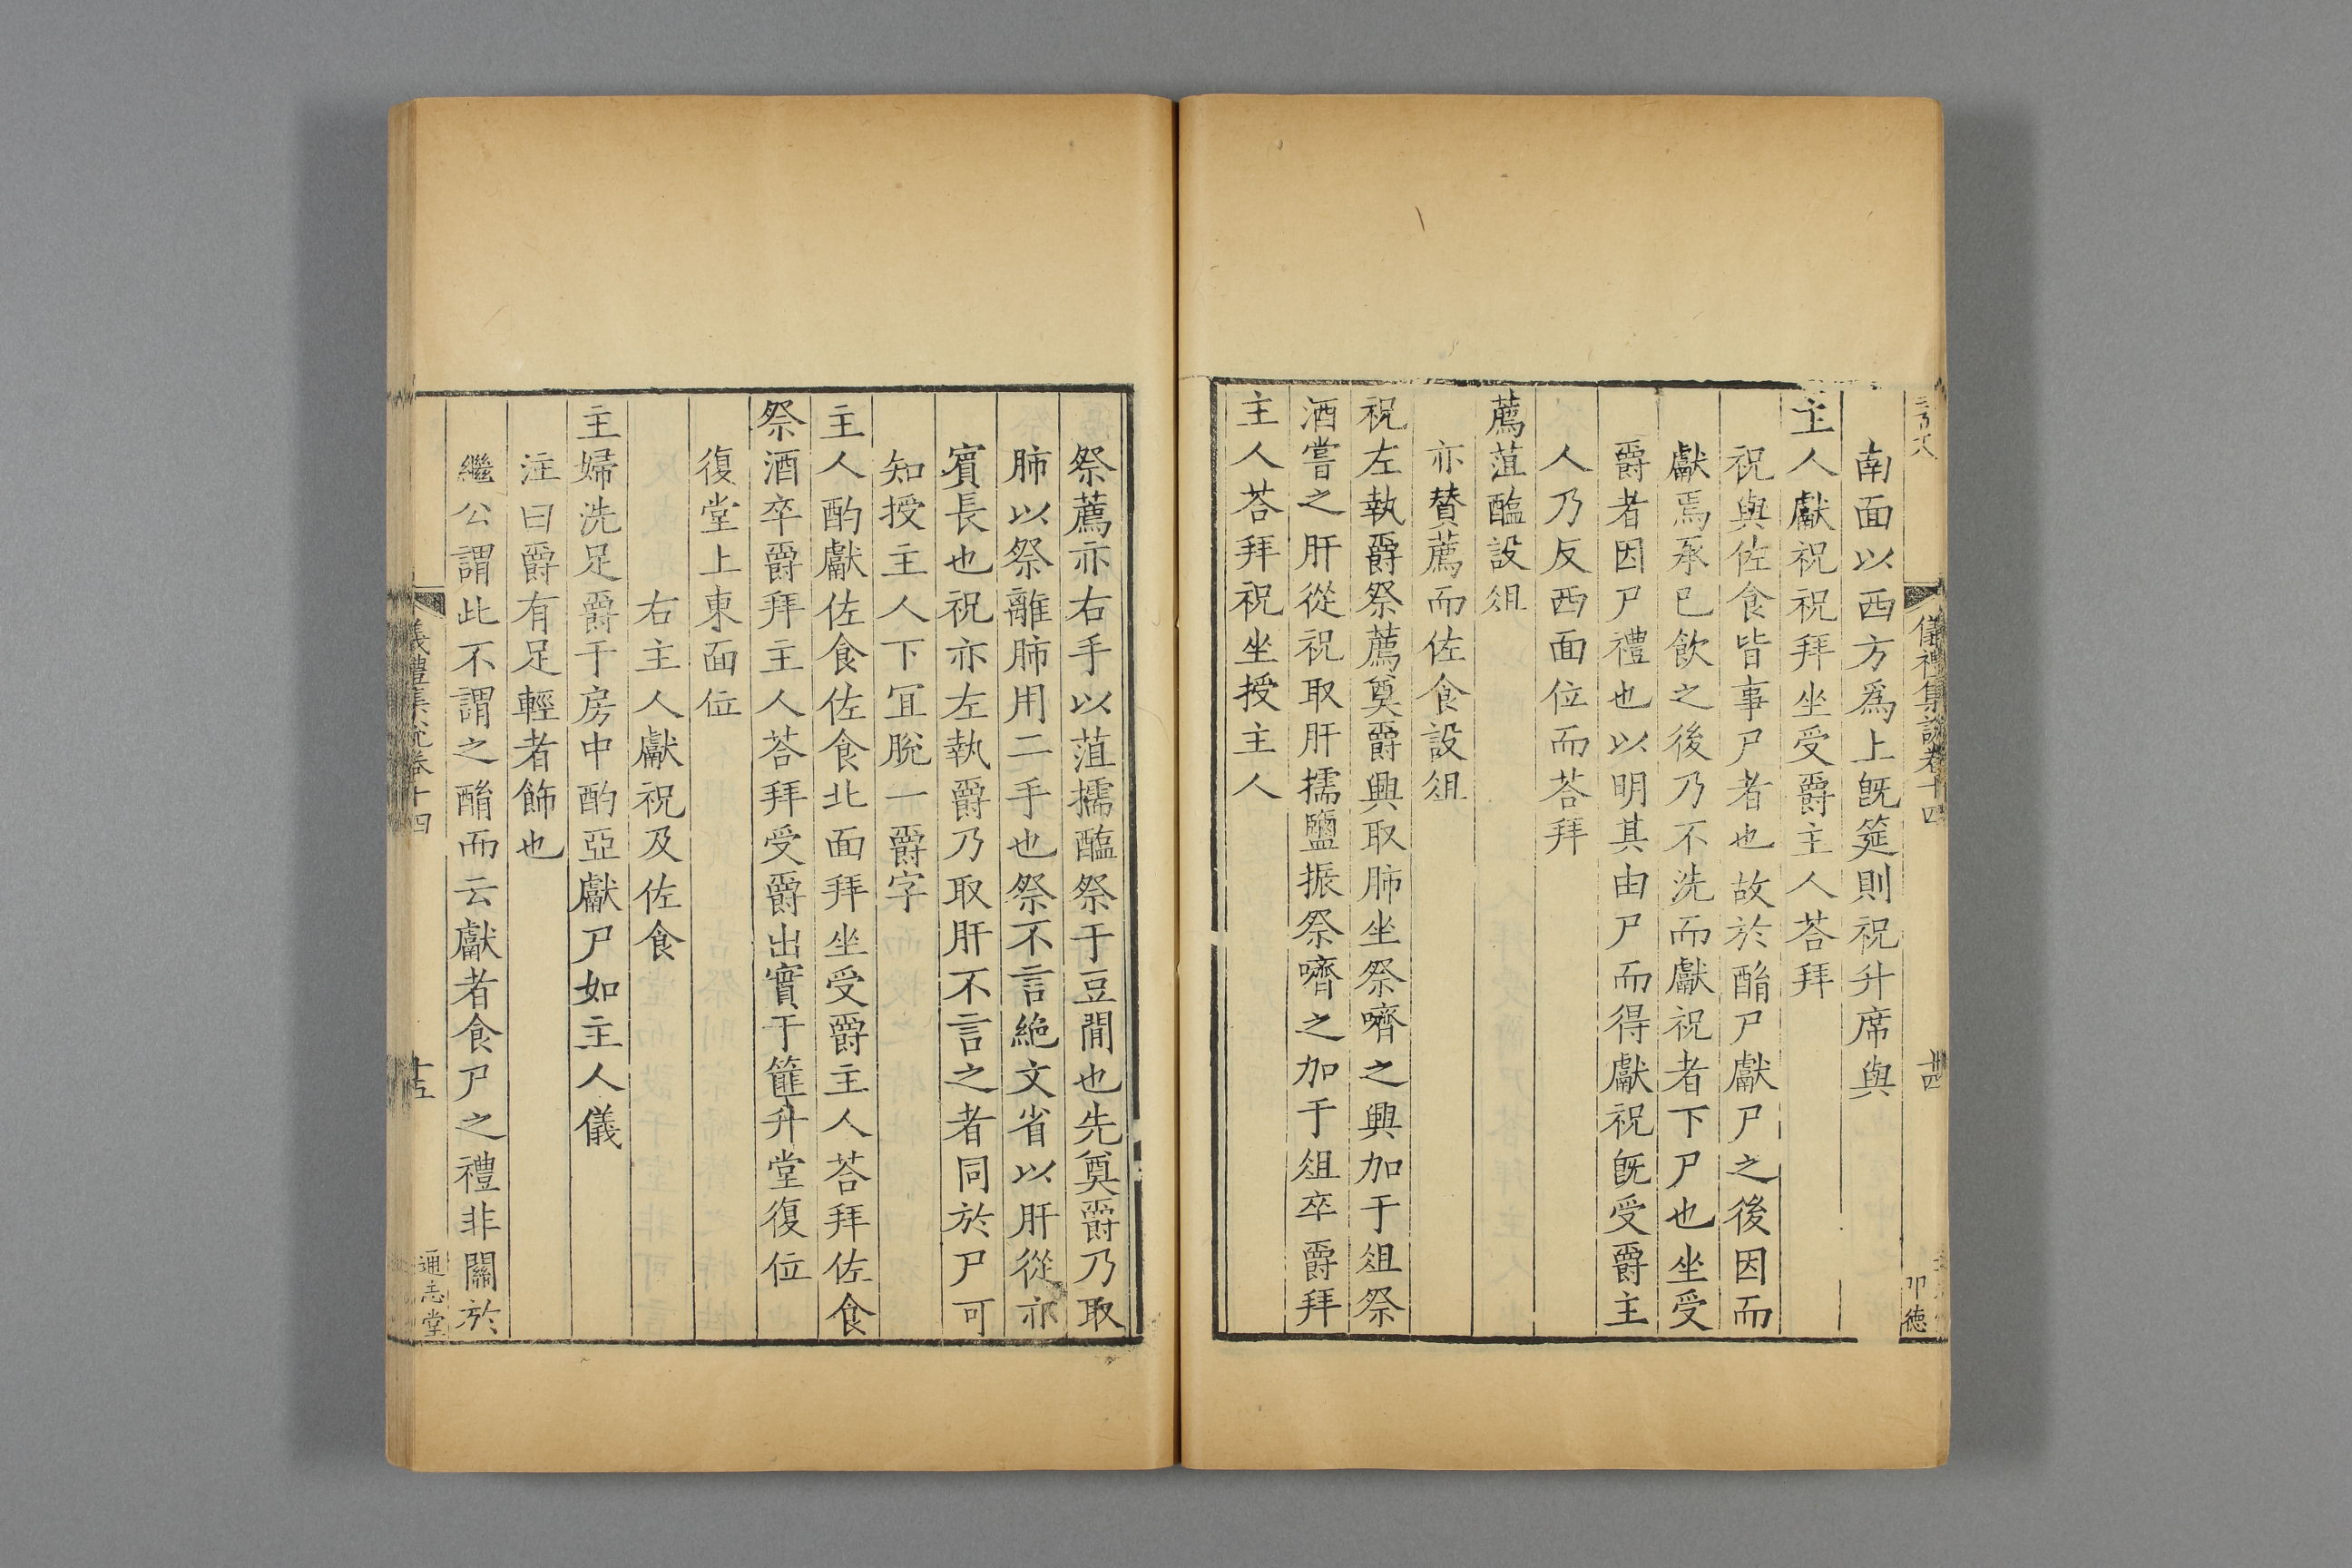 儀禮集說卷十四
廿四
南面以西方爲上旣筵則祝升席與
主人獻祝祝拜坐受爵主人荅拜
祝與佐食皆事尸者也故於酳尸獻尸之後因而
獻焉承已飲之後乃不洗而獻祝者下尸也坐受
爵者因尸禮也以明其由尸而得獻祝旣受爵主
人乃反西面位而荅拜
薦菹醢設俎
亦贊薦而佐食設俎
祝左執爵祭薦奠爵興取肺坐祭嚌之興加于俎祭
酒嘗之肝從祝取肝擩鹽振祭嚌之加于俎卒爵拜
主人荅拜祝坐授主人
祭薦亦右手以菹擩醢祭于豆閒也先奠爵乃取
肺以祭離肺用二手也祭不言絶文省以肝從亦
賔長也祝亦左執爵乃取肝不言之者同於尸可
知授主人下冝脫一爵字
主人酌獻佐食佐食北面拜坐受爵主人荅拜佐食
祭酒卒爵拜主人荅拜受爵出實于篚升堂復位
復堂上東面位
右主人獻祝及佐食
主婦洗足爵于房中酌亞獻尸如主人儀
注曰爵有足輕者飾也
繼公謂此不謂之酳而云獻者食尸之禮非關於
儀禮集說卷十四
十五
通志堂